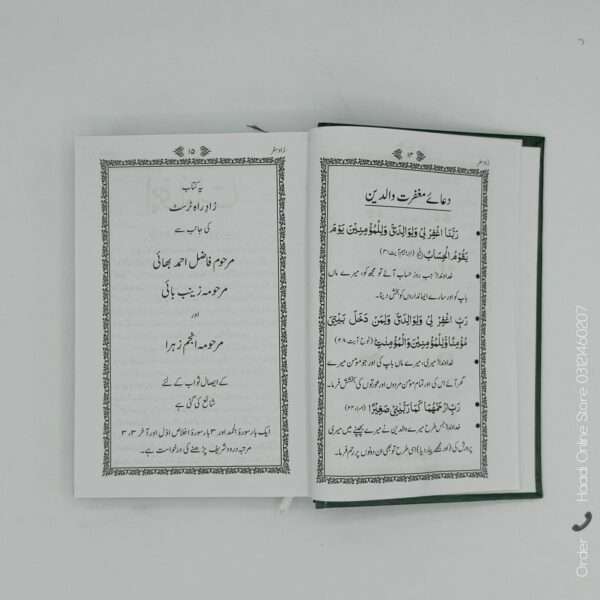 زادِ سفر
۱۴
دعائے مغفرت والدین
رَبَّنَا اغْفِرْ لِیْ وَلِوَالِدَیَّ وَلِلْمُؤْمِنِیْنَ یَوْمَ
یَقُوْمُ الْحِسَابُ (ابراہیم آیت ۴۱)
خداوندا! جب روزِ حساب آئے تو مجھ کو، میرے ماں
باپ کو اور سارے ایمانداروں کو بخش دینا۔
رَبِّ اغْفِرْ لِیْ وَلِوَالِدَیَّ وَلِمَنْ دَخَلَ بَیْتِیَ
مُؤْمِنًا وَّلِلْمُؤْمِنِیْنَ وَالْمُؤْمِنٰتِ (نوح آیت ۲۸)
خداوندا! میری، میرے ماں باپ کی اور جو مومن میرے
گھر آئے اس کی اور تمام مومن مردوں اور عورتوں کی بخشش فرما۔
رَبِّ ارْحَمْهُمَا کَمَا رَبَّیٰنِیْ صَغِیْرًا
خداوندا! جس طرح میرے والدین نے میرے بچپنے میں میری
پرورش کی (اور مجھے پیار دیا) اسی طرح تو بھی ان دونوں پر رحم فرما۔
زادِ سفر
۱۵
یہ کتاب
زادِ راہ ٹرسٹ
کی جانب سے
مرحوم فاضل احمد بھائی
مرحومہ زینب بائی
اور
مرحومہ انجم زہرا
کے ایصالِ ثواب کے لئے
شائع کی گئی ہے
ایک بار سورۂ الحمد اور ۳ بار سورۂ اخلاص اوّل اور آخر ۳، ۳
مرتبہ درود شریف پڑھنے کی درخواست ہے۔
Order Haadi Online Store 0338460207